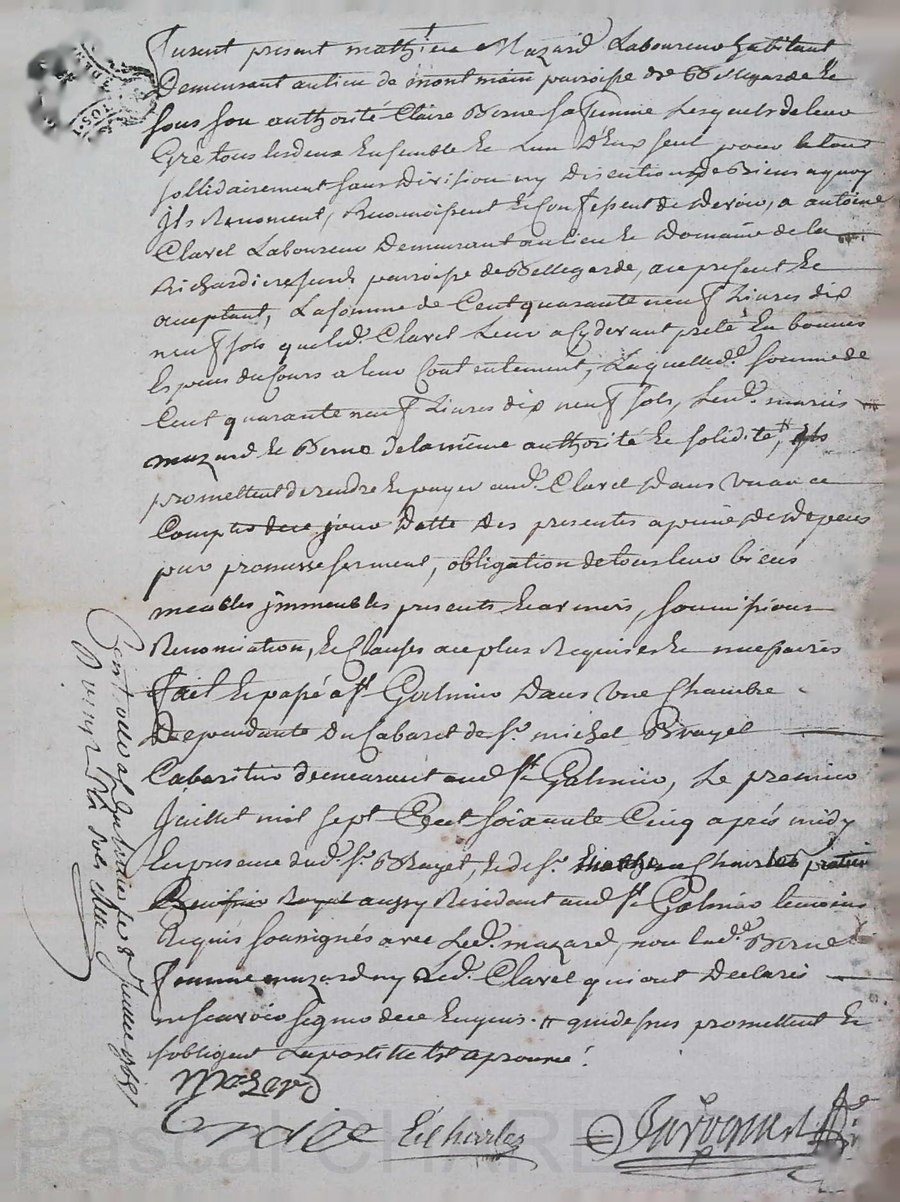 Furent present mathieu Mazard Laboureur habitant
Demeurant au lieu de montmain paroisse de Bellegarde Et
sous son authorité Claire Berne sa femme Lesquels de leur
Gré tous les deux Ensemble Et Lun D'Eux seul pour le tout
sollidairement sans Division ny Discution de Biens a quoy
Ils Renoncent, Reconnoissent Et Confessent de devoir, a antoine
Clavel Laboureur Demeurant au lieu Et Domaine de la
paroisse de Bellegarde, a ce present Et
acceptant, La somme de Cent quarante neuf Livres dix
neuf sols que led. Clavel Leur a cy devant preté En bonnes
Especes du Cours a leur Contentement, Laquelle de. somme de
Cent quarante neuf Livres dix neuf sols, Lesd. mariés
mazard Et Berne de la meme authorité Et solidité,
promettent de rendre Et payer aud. Clavel Dans un an a
Compter de ce jour Datte Des presentes a peine de Depens
par promesse serment, obligation de tous leur biens
meubles jmmeubles presents Et avenir, soumissions
Renonciation, Et Clauses a ce plus Requises Et necessaires
Fait Et passé a St. Galmier Dans une Chambre
Dependante Du Cabaret de Sr. michel Brayet
Cabaretier demeurant aud St. Galmier, Le premier
Juillet mil sept Cent soixante Cinq après midy
En presence dud. Sr. Brayet, Et de Sr. Charles
Royal aussy Residant aud St. Galmier temoins
Requis soussignés avec Led. mazard, non lad. Berne
femme mazard ny Led. Clavel qui ont Declaré
ne scavoir signer de ce Enquis. # qui dessus promettent Et
sobligent La postille Est aprouvé.
Mazard
Charles
Con.lé a St
sols
Pascal